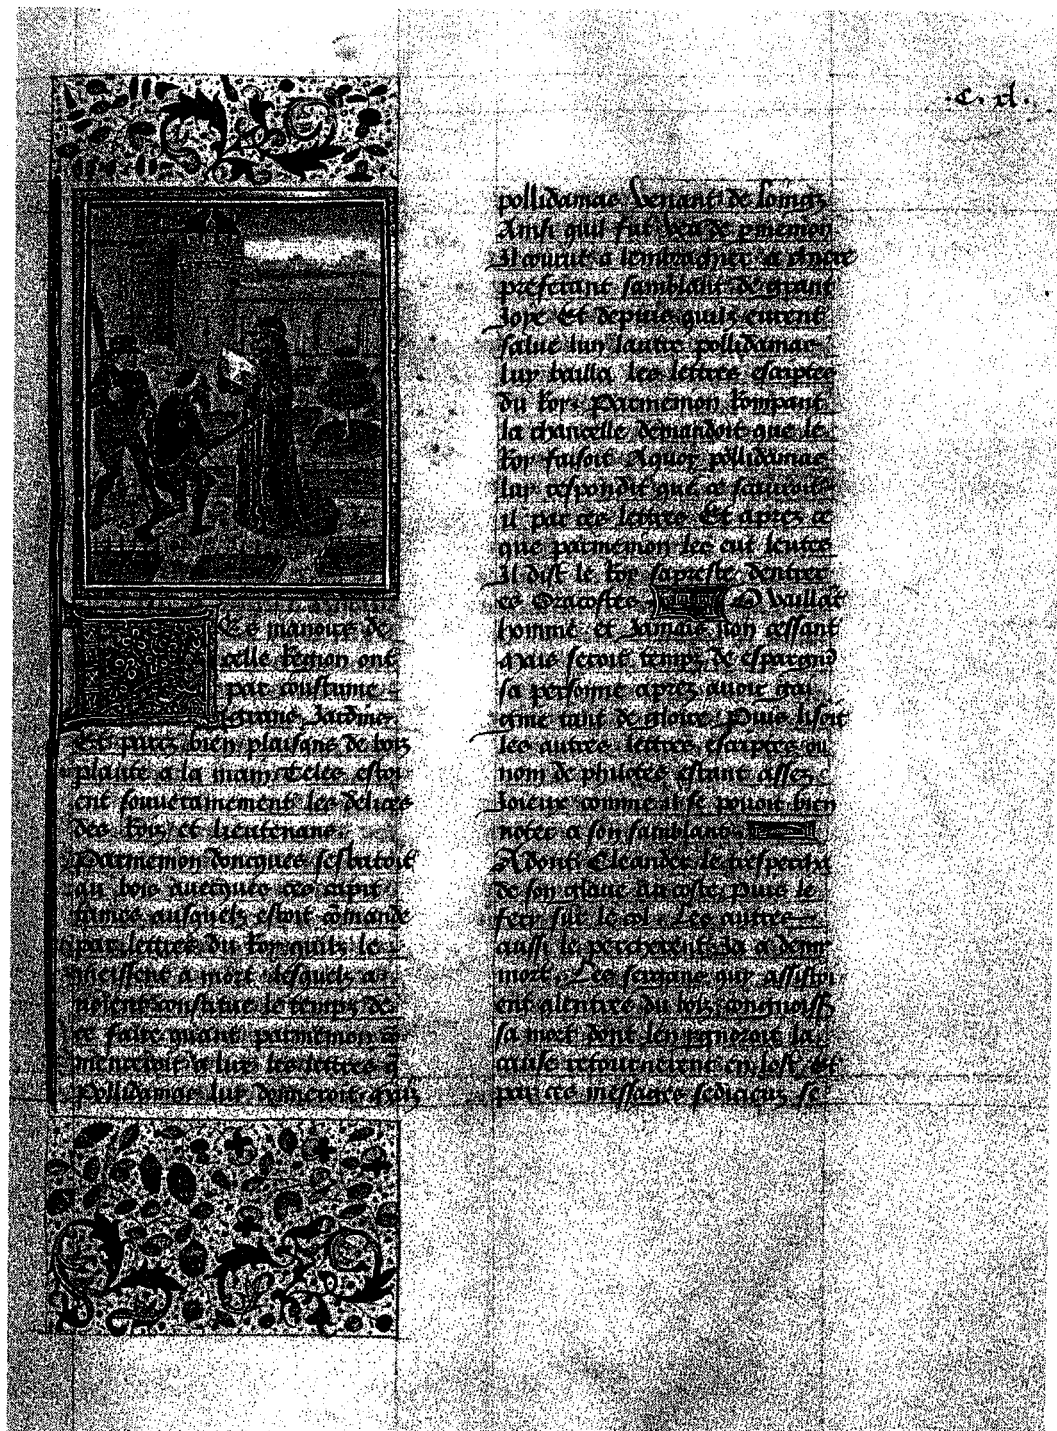 .c. xl.
Es manoirs de
celle region ont
par coustume
grans Jardins
Et parcz bien plaisans de bois
plante a la main Celes estoi
ent souverainnement les delices
des rois et lieutenans.
Parmenion doncques sesbatoit
au bois avecques ces capi
taines ausquels estoit comande
par lettres du roy quilz le
meissent a mort desquels a
voient constitue le temps de
ce faire quant parmenion co
menceroit a lire les lettres q
Pollidamas luy donneroit quis
pollidamas venant de loings
Ainsi quil fut veu de pmenion
Il courut a lembrachier a chiere
presentant samblant de grant
Joye Et depuis quilz eurent
salue lun lautre pollidamas
luy bailla les lettres escriptes
du roy Parmenion rompant
la chancelle demandoit que le
roy faisoit Aquoy pollidamas
luy respondit que ce scauroit
il par ces lettres Et aprez ce
que parmenion les eut leutes
Il dist le roy sapreste dentrer
es Oracostes O vaillat
homme et Jamais non cessant
Mais seroit temps de espargnr
sa personne aprez avoir
tant de gloire Puis lisoit
les autres lettres escriptes ou
nom de philotes estant assez
Joieux comme il se pouoit bien
noter a son samblant.
Adont Cleander le
de son glave au coste Puis le
fery sur le col. Les autres
aussi le percherent Ja a demy
mort. Les sergans qui assistoi
ent alentree du bois congnoissz
sa mort dont len ignoroit la
cause retournerent en lost et
par ces messages sedicieux se